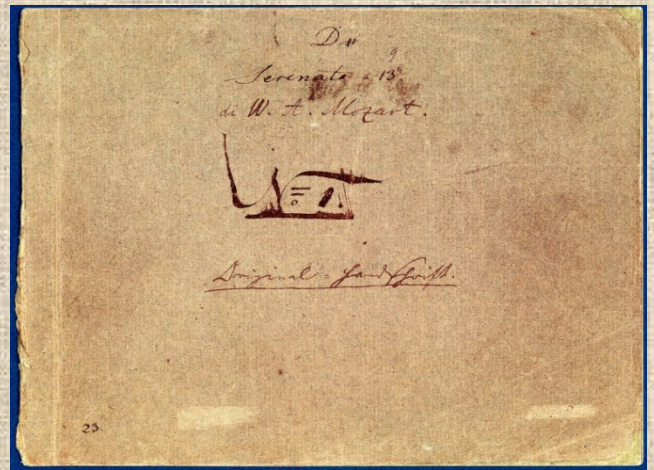 Serenata à 13.
di W. A. Mozart.
Original-Handschrift.
23